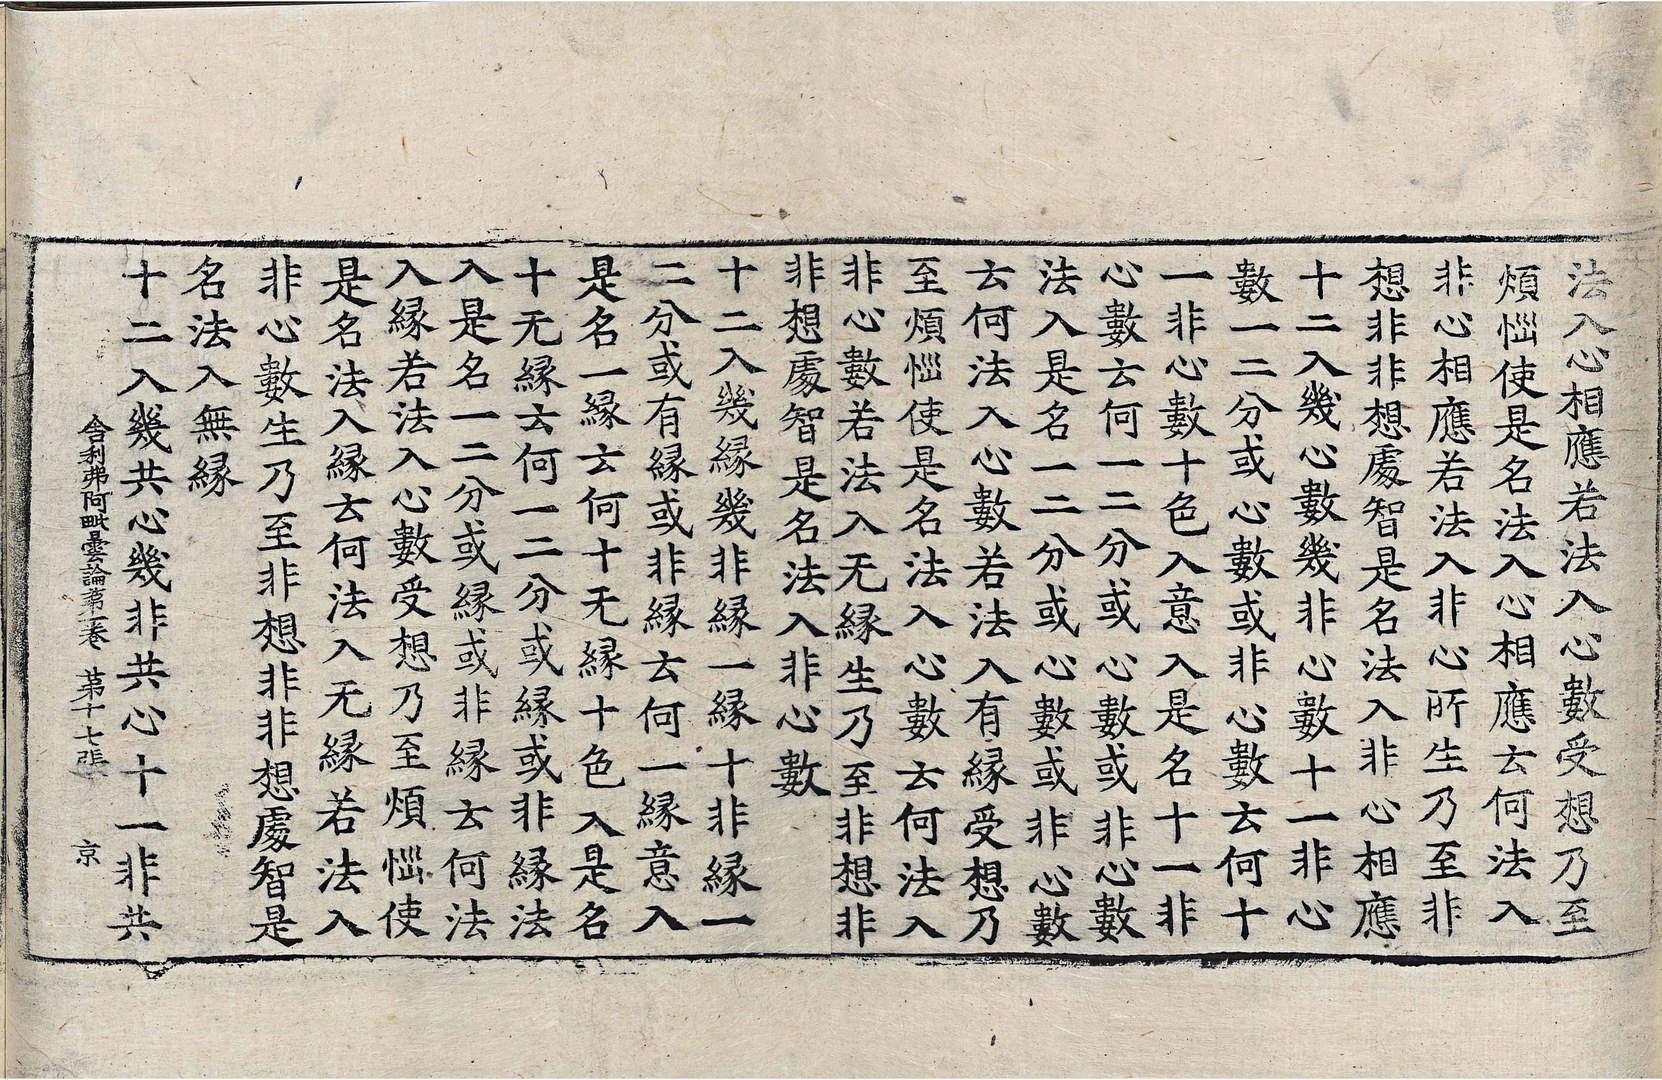 法入心相應若法入心數受想乃至
煩惱使是名法入心相應云何法入
非心相應若法入非心所生乃至非
想非非想處智是名法入非心相應
十二入幾心數幾非心數十一非心
數一二分或心數或非心數云何十
一非心數十色入意入是名十一非
心數云何一二分或心數或非心數
法入是名一二分或心數或非心數
云何法入心數若法入有縁受想乃
至煩惱使是名法入心數云何法入
非心數若法入无縁生乃至非想非
非想處智是名法入非心數
十二入幾縁幾非縁一縁十非縁一
二分或有縁或非縁云何一縁意入
是名一縁云何十无縁十色入是名
十无縁云何一二分或縁或非縁法
入是名一二分或縁或非縁云何法
入縁若法入心數受想乃至煩惱使
是名法入縁云何法入无縁若法入
非心數生乃至非想非非想處智是
名法入無縁
十二入幾共心幾非共心十一非共
舍利弗阿毗曇論第一卷 第十七張 京